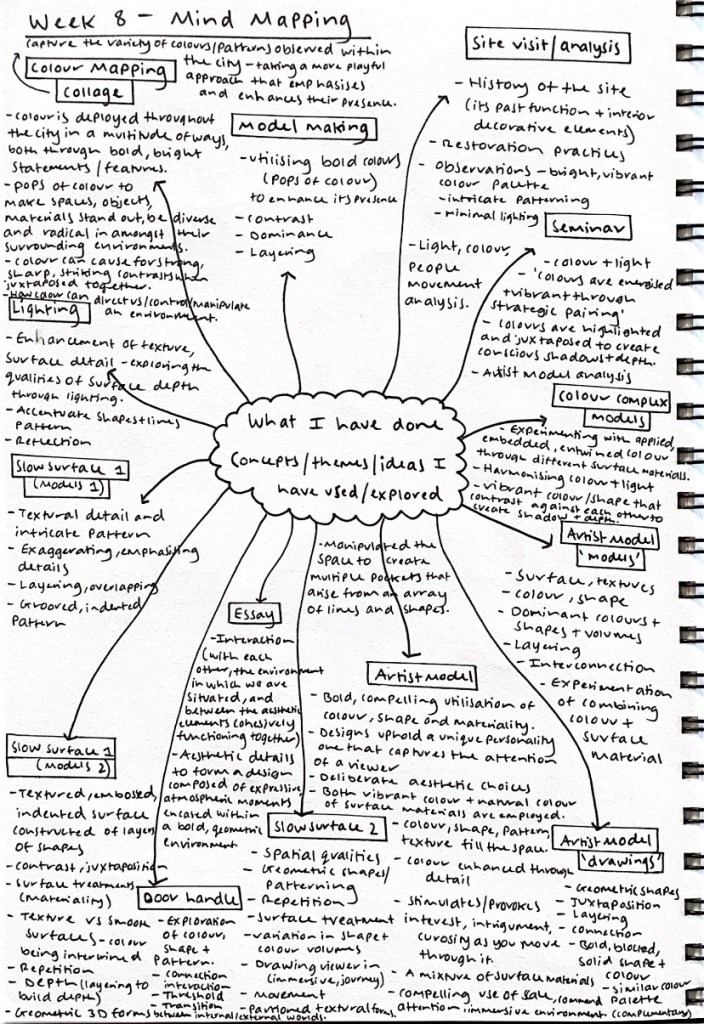 Week 8 - Mind Mapping
capture the variety of colours/patterns observed within
the city - taking a more playful
approach that emphasises
and enhances their presence.
Colour Mapping
collage
- colour is deployed throughout
the city in a multitude of ways,
both through bold, bright
statements/features.
- pops of colour to
make spaces, objects,
materials stand out, be diverse
and radical in amongst their
surrounding environments.
- colour can cause for strong,
sharp, striking contrasts when
juxtaposed together.
- How colour can direct us/control/manipulate
an environment.
Model making
- utilising bold colours
(pops of colour)
to enhance its presence
- contrast
- Dominance
- Layering
Site visit/analysis
- History of the site
(its past function + interior
decorative elements)
- Restoration practices
- Observations - bright, vibrant
colour palette
- intricate patterning
- minimal lighting
- Light, colour,
people
movement
analysis.
Seminar
- colour + light
- 'colours are energised
+ vibrant through
strategic pairing'
- colours are highlighted
and juxtaposed to create
conscious shadows + depth.
- Artist model analysis
Lighting
- Enhancement of texture,
surface detail - exploring the
qualities of surface depth
through lighting.
- Accentuate shapes + lines
pattern
- Reflection
What I have done
concepts/themes/ideas I
have used/explored
colour complex
models
- Experimenting with applied,
embedded, entwined colour
through different surface materials.
- Harmonising colour + light
- vibrant colour/shape that
contrast against each other to
create shadow + depth.
Slow surface 1
(models 1)
- Textural detail and
intricate pattern
- Exaggerating, emphasising
details
- Layering, overlapping
- Grooved, indented
pattern
Artist model
'models'
- Surface, textures
- colour, shape
- Dominant colours +
shapes + volumes
- Layering
- Interconnection
- Experimentation
of combining
colour +
surface
material
- Manipulated the
space to create
multiple pockets that
arise from an array
of lines and shapes.
Essay
- Interaction
(with each
other, the environment
in which we are
situated, and
between the aesthetic
elements cohesively
functioning together)
- Aesthetic details
to form a design
composed of expressive
atmospheric moments
encated within
a bold, geometric
environment
Artist model
- Bold, compelling utilisation of
colour, shape and materiality.
- Designs uphold a unique personality
one that captures the attention
of a viewer
- Deliberate aesthetic choices
- Both vibrant colour + natural colour
of surface materials are employed.
- colour, shape, pattern,
texture fill the space.
- colour enhanced through
detail
- stimulates/provokes
interest, intrigument,
curosity as you move
through it.
- A mixture of surface materials
- compelling use of scale, command
attention, immersive environment
Slow surface 1
(models 2)
- Textured, embossed,
indented surface
constructed of layers
of shapes
- contrast, juxtaposition
- surface treatments
(materiality)
- Texture vs smooth
surfaces - colour
being intertwined
- Repetition
- Depth (layering to
build depth)
- Geometric 3D forms
Door handle
- Exploration
of colour,
shape +
pattern.
- connection
interaction
- Threshold
- Transition
between internal/external worlds.
Slow surface 2
- Spatial qualities
- Geometric shapes/
patterning
- Repetition
- Surface treatment
- variation in shape +
colour volumes
- Drawing viewer in
(immersive, journey)
- movement
- textural forms
Artist model
'drawings'
- Geometric shapes
- Juxtaposition
- Layering
- connection
- Bold, blocked,
solid shape +
colour
- similar colour
palette
(complementary)